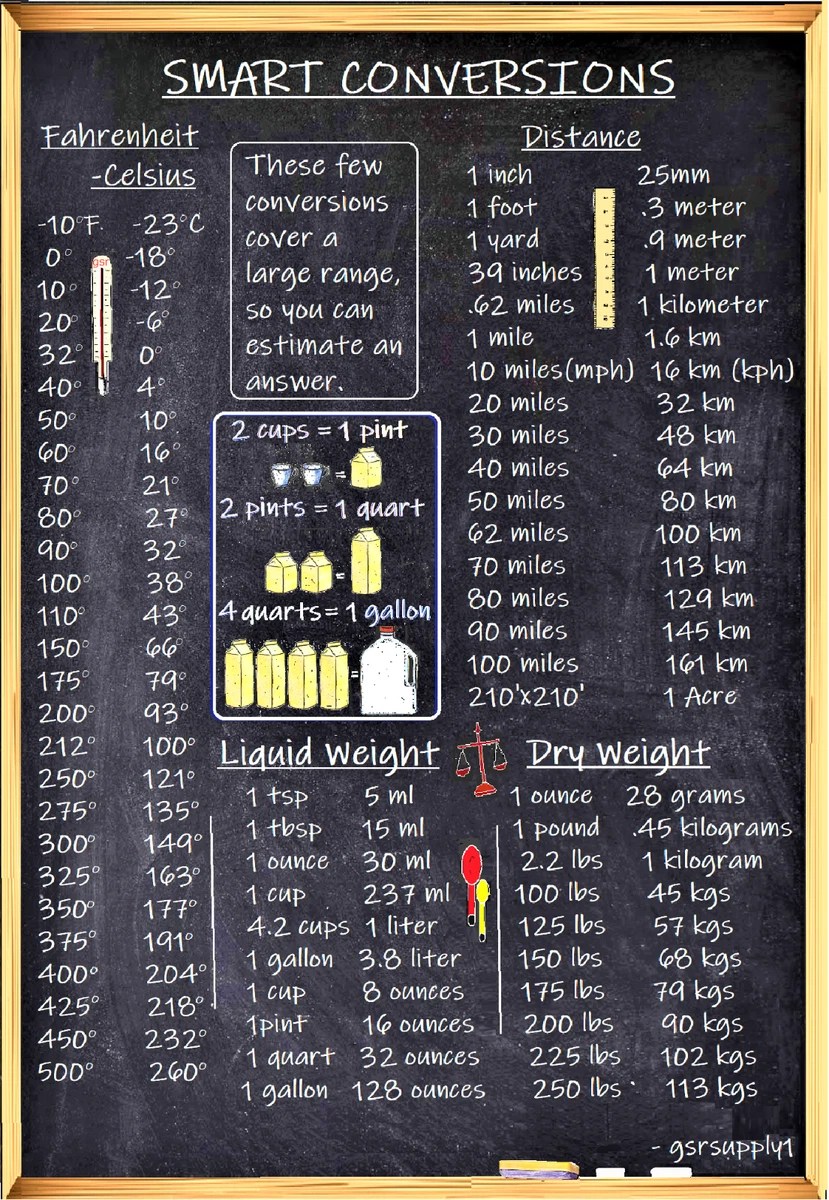 SMART CONVERSIONS
Fahrenheit
-Celsius
-10°F. -23°C
0° -18°
10° -12°
20° -6°
32° 0°
40° 4°
50° 10°
60° 16°
70° 21°
80° 27°
90° 32°
100° 38°
110° 43°
150° 66°
175° 79°
200° 93°
212° 100°
250° 121°
275° 135°
300° 149°
325° 163°
350° 177°
375° 191°
400° 204°
425° 218°
450° 232°
500° 260°
gsr
These few
conversions
cover a
large range,
so you can
estimate an
answer.
2 cups = 1 pint
=
2 pints = 1 quart
=
4 quarts = 1 gallon
=
Distance
1 inch 25mm
1 foot .3 meter
1 yard .9 meter
39 inches 1 meter
.62 miles 1 kilometer
1 mile 1.6 km
10 miles(mph) 16 km (kph)
20 miles 32 km
30 miles 48 km
40 miles 64 km
50 miles 80 km
62 miles 100 km
70 miles 113 km
80 miles 129 km
90 miles 145 km
100 miles 161 km
210'x210' 1 Acre
Liquid Weight
1 tsp 5 ml
1 tbsp 15 ml
1 ounce 30 ml
1 cup 237 ml
4.2 cups 1 liter
1 gallon 3.8 liter
1 cup 8 ounces
1pint 16 ounces
1 quart 32 ounces
1 gallon 128 ounces
Dry Weight
1 ounce 28 grams
1 pound .45 kilograms
2.2 lbs 1 kilogram
100 lbs 45 kgs
125 lbs 57 kgs
150 lbs 68 kgs
175 lbs 79 kgs
200 lbs 90 kgs
225 lbs 102 kgs
250 lbs 113 kgs
- gsrsupply1